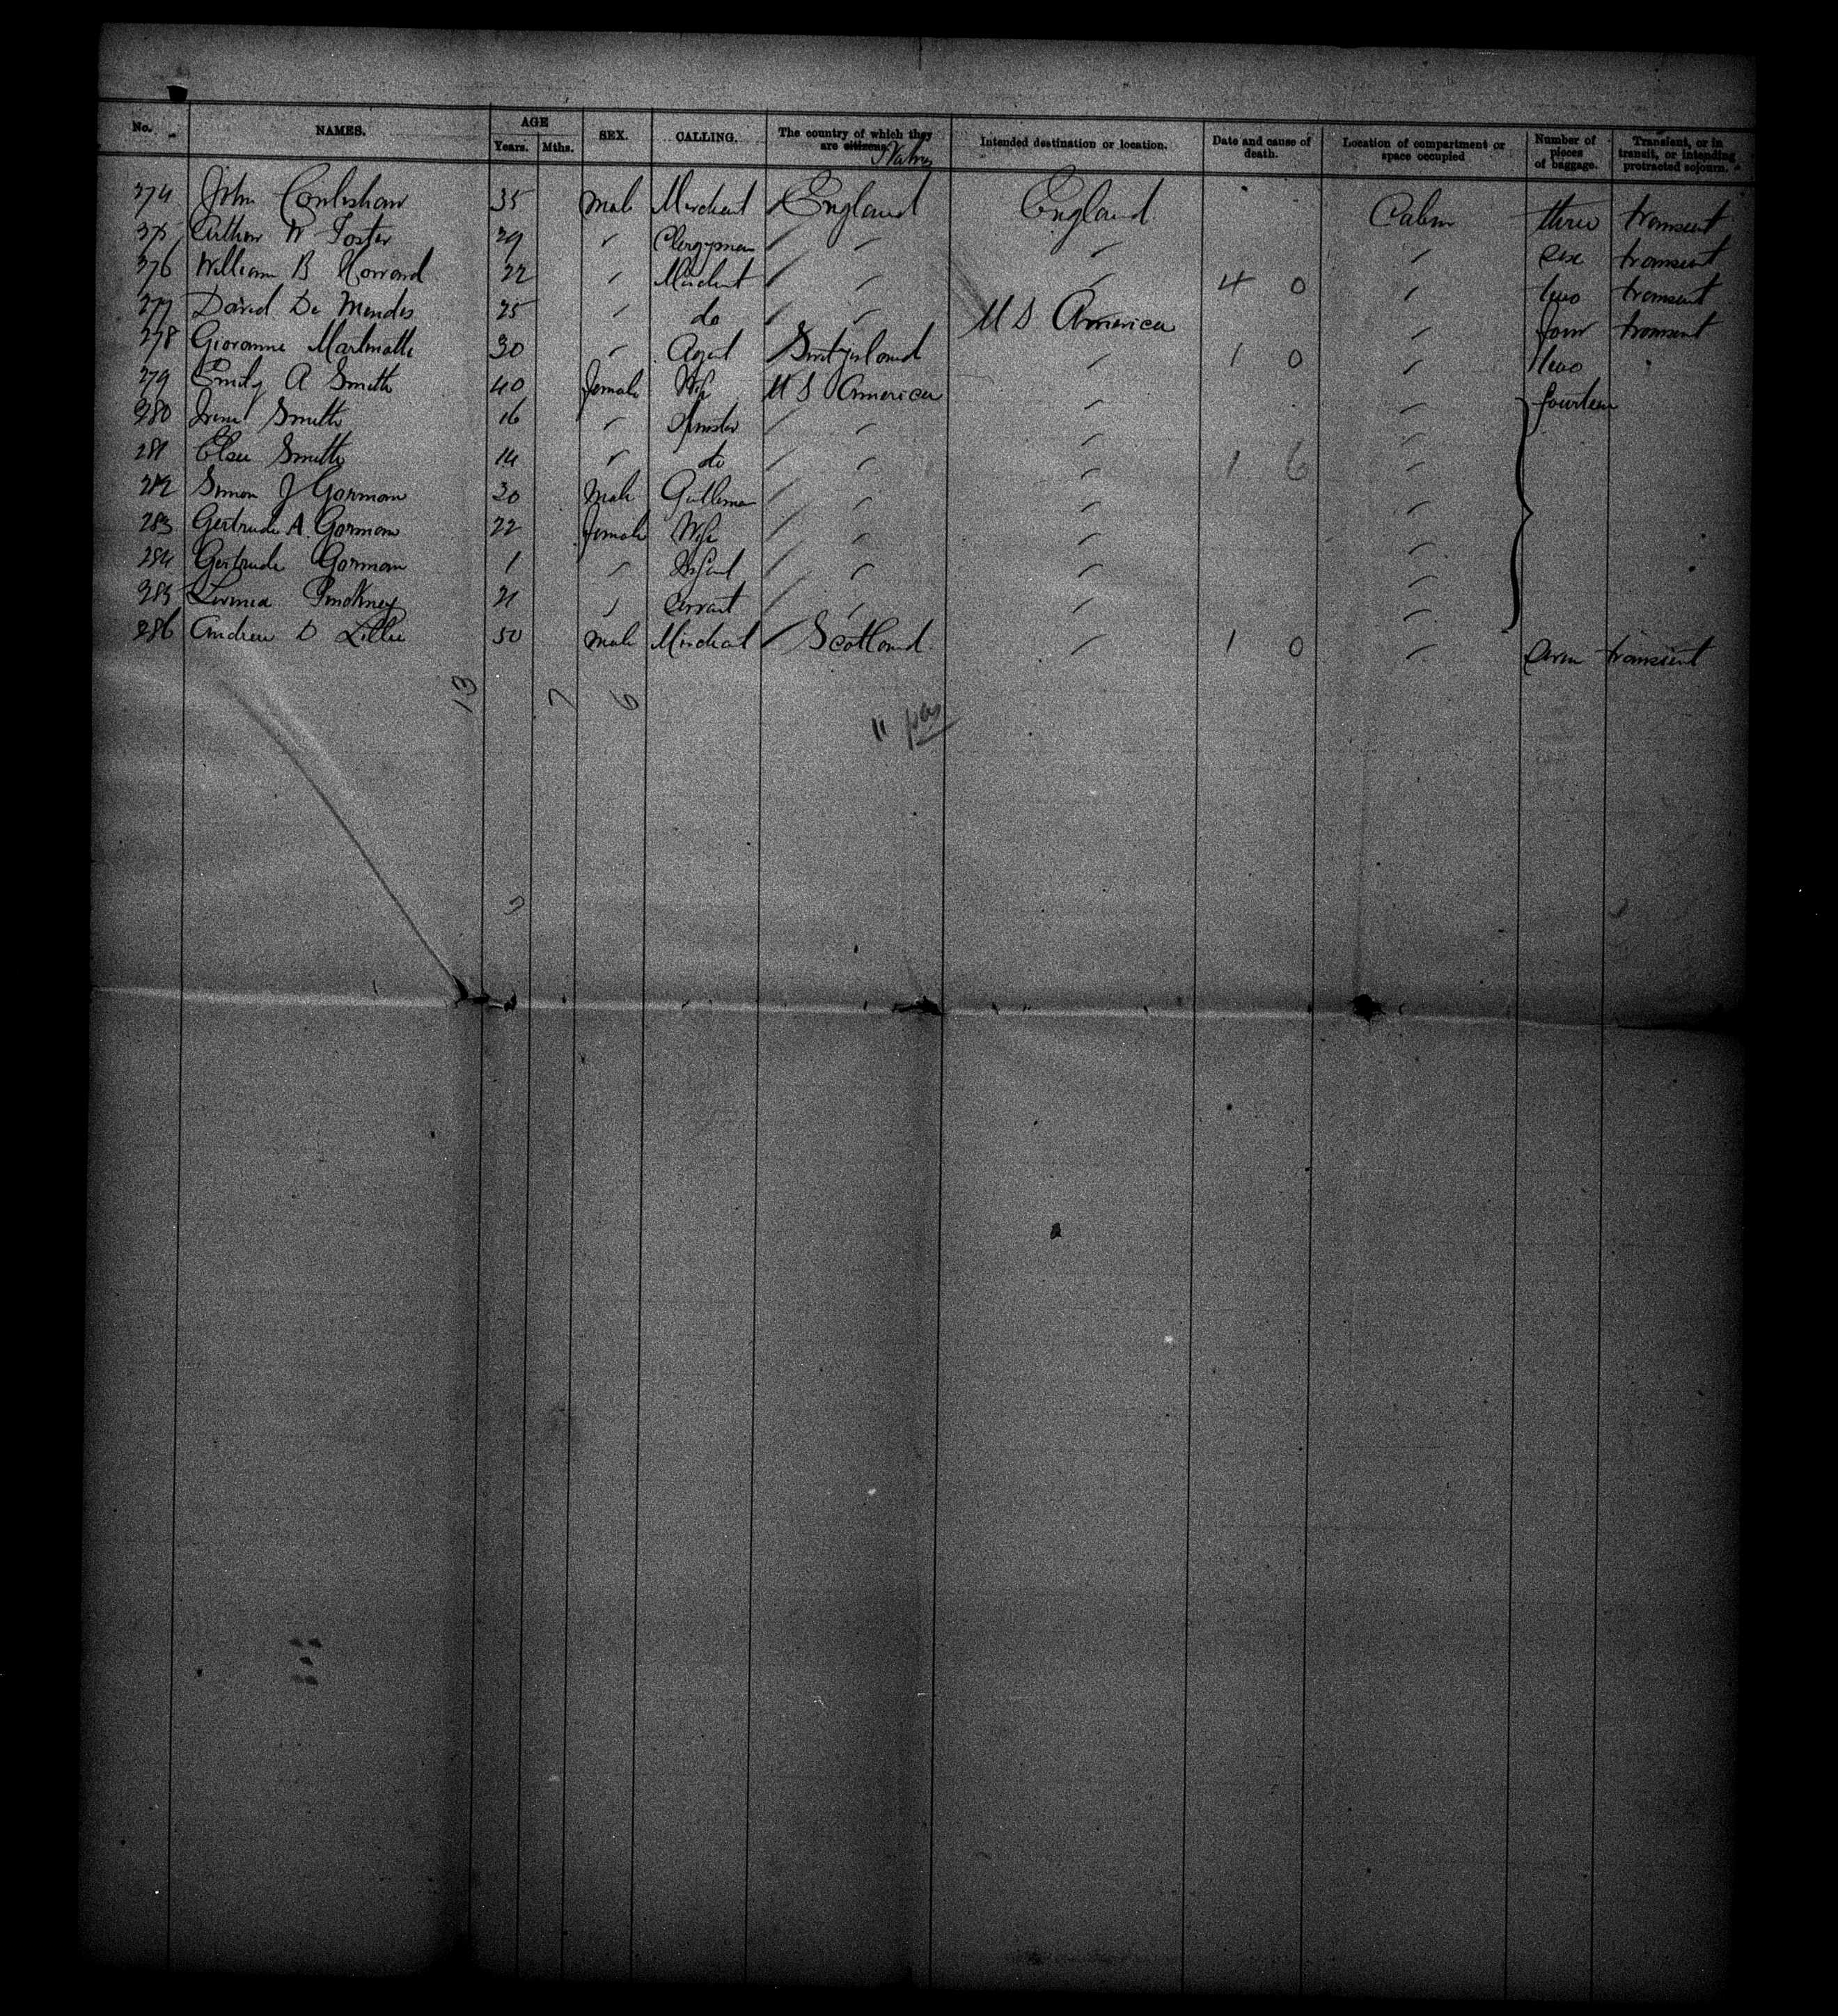 No. NAMES. AGE SEX. CALLING. The country of which they are citizens. Intended destination or location. Date and cause of death. Location of compartment or space occupied Number of pieces of baggage. Transient, or in transit, or intending protracted sojourn.
Years. Mths.
274 John 35 Male Merchant England England Cabin three transient
275 Arthur W Foster 29 " Clergyman " " " six transient
276 William B Howard 22 " Merchant " " 4 0 " two transient
277 David De Mendes 25 " do " " U S America four transient
278 Giovanni 30 " Agent Switzerland " 1 0 " two
279 Emily A Smith 40 female Wife U S America " " fourteen
280 Irene Smith 16 " Spinster " " " "
281 Elsie Smith 14 " do " " " 1 6 "
282 Simon J Gorman 30 Male Gentleman " " "
283 Gertrude A. Gorman 22 female Wife " " " "
284 Gertrude Gorman 1 " Infant " " " "
285 Pinckney 21 " Servant " " " "
286 Andrew D Lillie 50 male Merchant Scotland " 1 0 " seven transient
13 7 6
11